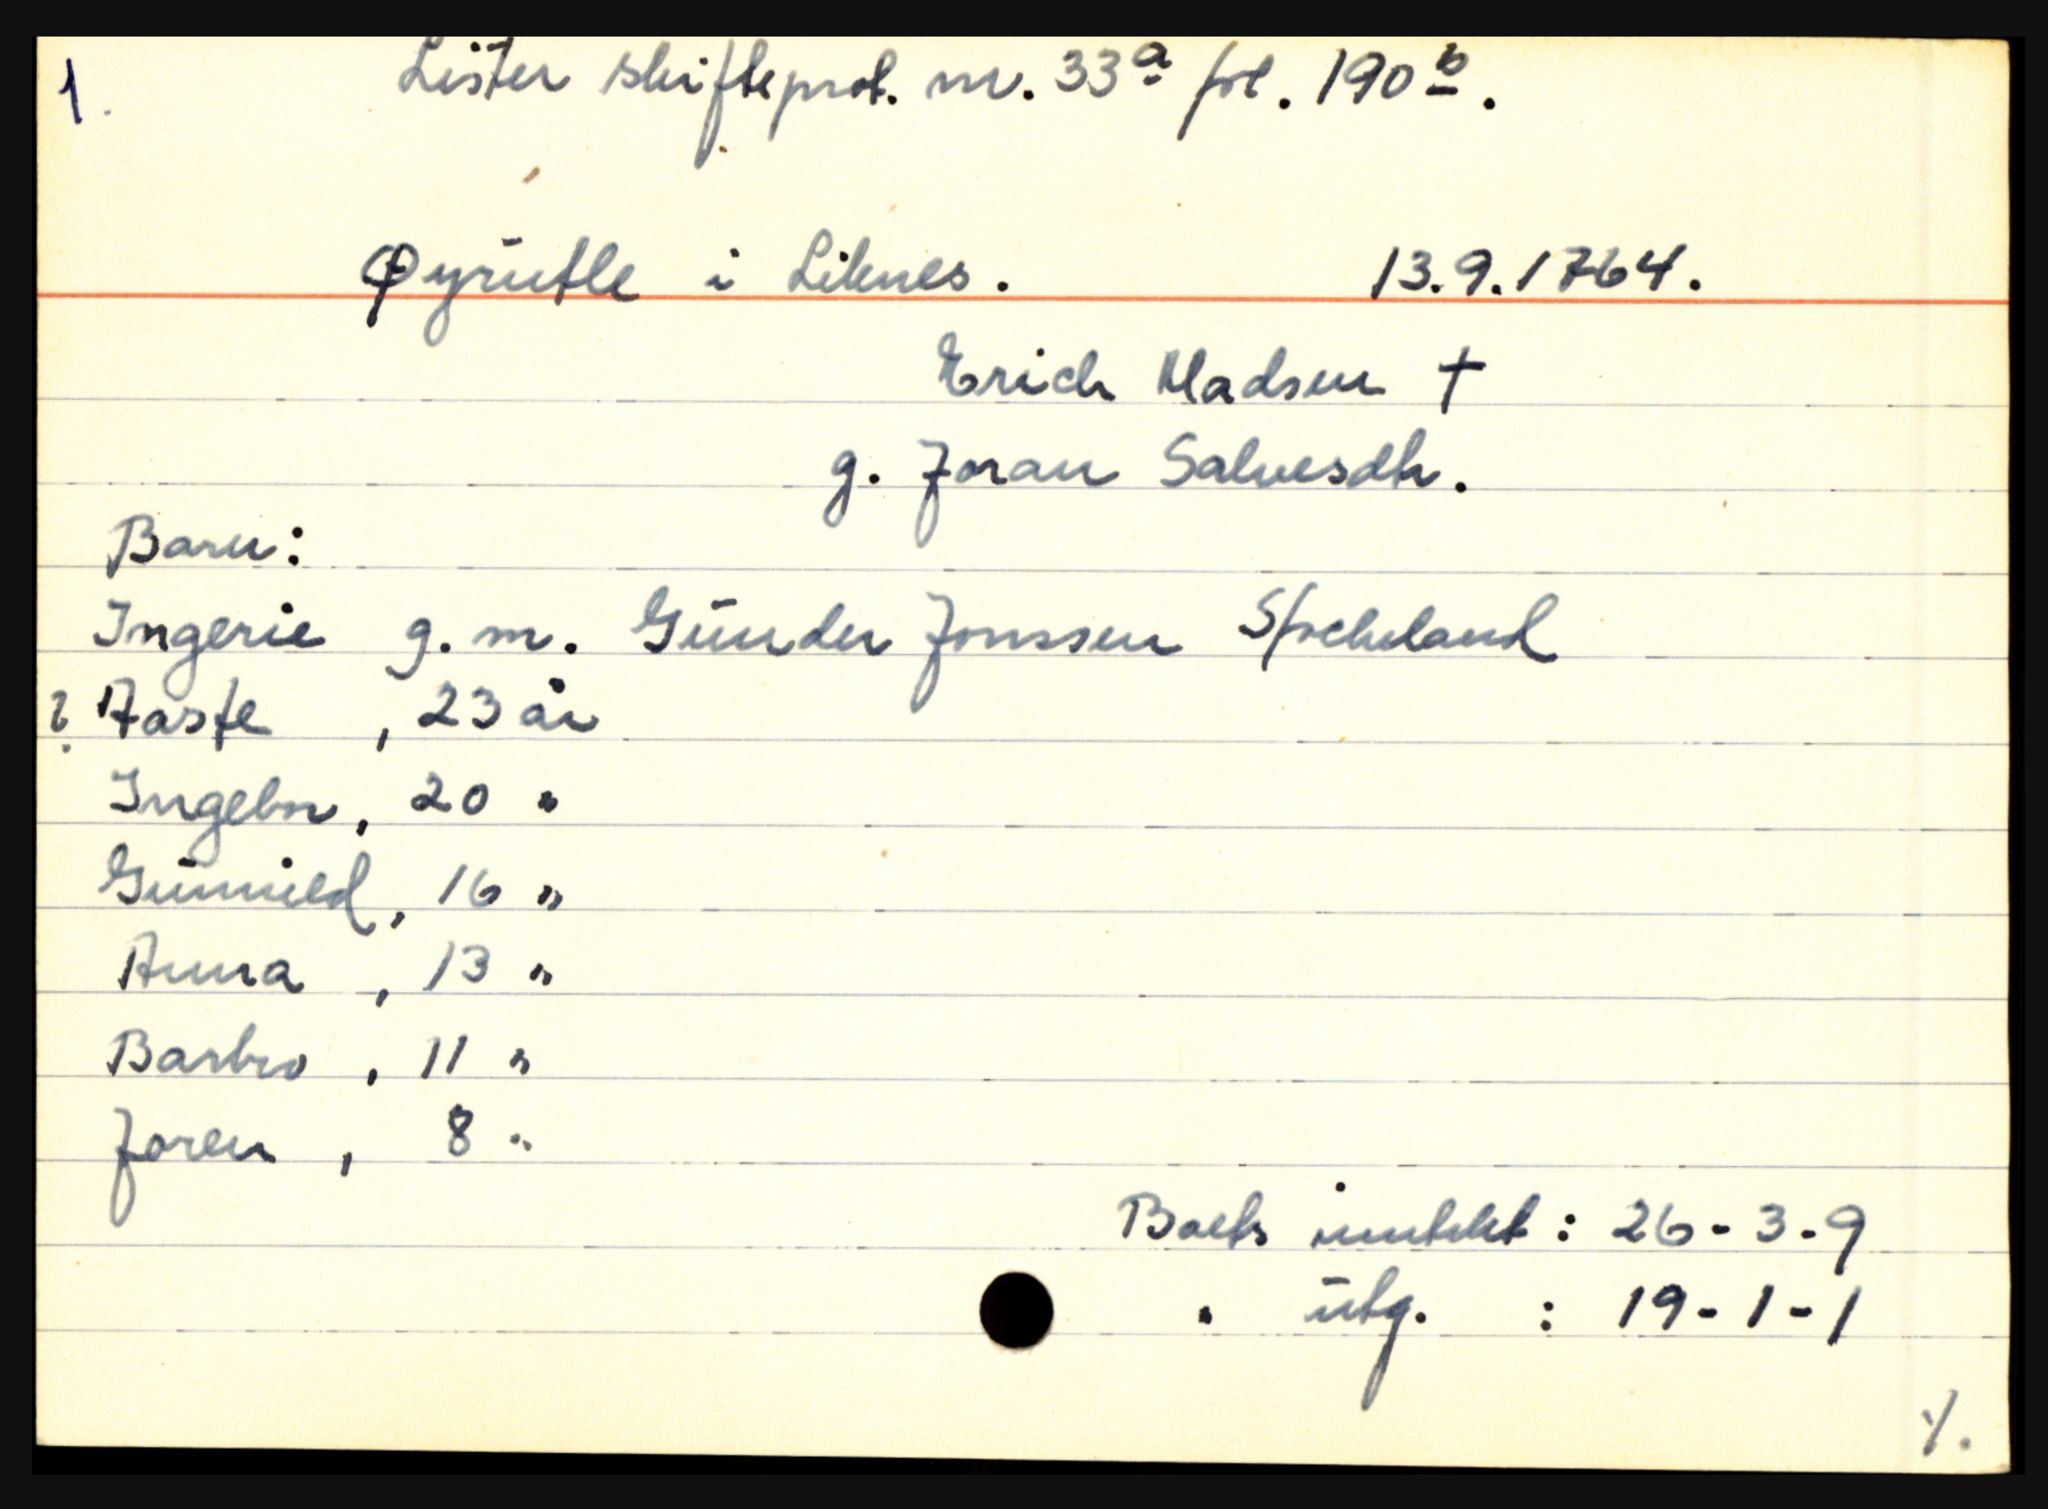 1.
Lister skifteprot. nr. 33a fol. 190b.
Øyrütle i Liknes. 13.9.1764.
Erich Madsen †
g. Joran Salvesdtr.
Barn:
Ingerie g.m. Günder Jonssen
? Aaste, 23 år
Ingebor, 20 "
Günnild, 16 "
Anna, 13 "
Barbro, 11 "
Joren, 8 "
Boets inntekt: 26-3-9
" ütg. : 19-1-1